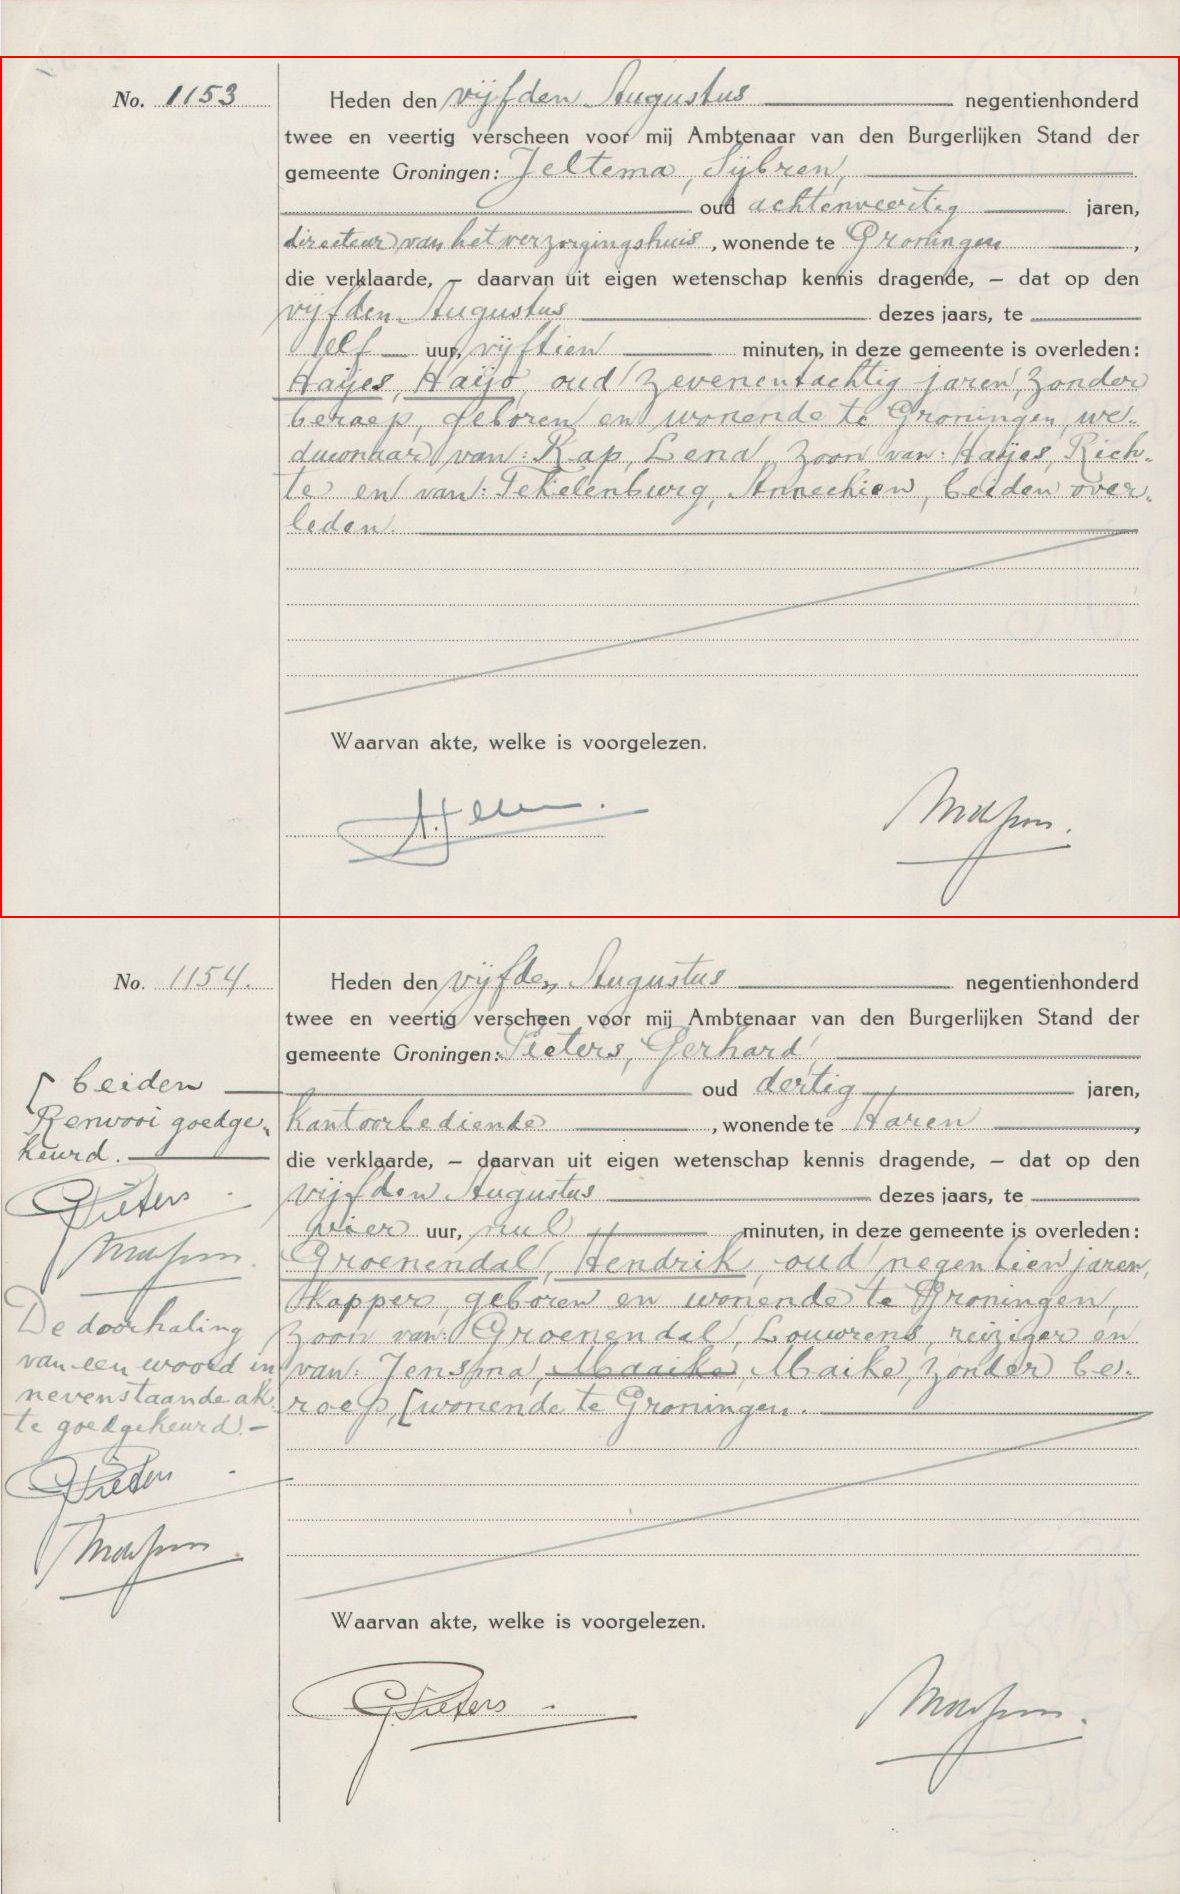 No. 1153
Heden den vijfden Augustus negentienhonderd
twee en veertig verscheen voor mij Ambtenaar van den Burgerlijken Stand der
gemeente Groningen: Jeltema, Sijbren,
oud achtenveertig jaren,
directeur van het verzorgingshuis, wonende te Groningen,
die verklaarde, – daarvan uit eigen wetenschap kennis dragende, – dat op den
vijfden Augustus dezes jaars, te
elf uur, vijftien minuten, in deze gemeente is overleden:
Haijes, Haijo, oud zevenentachtig jaren, zonder
beroep, geboren en wonende te Groningen, we-
duwnaar van: Rap, Lena, zoon van: Haijes, Rich-
te en van: Tekelenburg, Annechien, beiden over-
leden.
Waarvan akte, welke is voorgelezen.
No. 1154.
Heden den vijfden Augustus negentienhonderd
twee en veertig verscheen voor mij Ambtenaar van den Burgerlijken Stand der
gemeente Groningen: Pieters, Gerhard,
oud dertig jaren,
kantoorbediende, wonende te Haren,
die verklaarde, – daarvan uit eigen wetenschap kennis dragende, – dat op den
vijfden Augustus dezes jaars, te
vier uur, nul minuten, in deze gemeente is overleden:
Groenendal, Hendrik, oud negentien jaren,
kapper, geboren en wonende te Groningen,
zoon van: Groenendal, Louwrens, reiziger en
van: Jensma, Maaike, Maike, zonder be-
roep, [wonende te Groningen.
Waarvan akte, welke is voorgelezen.
G. Pieters
[ beiden
Renvooi goedge-
keurd.
G. Pieters
De doorhaling
van een woord in
nevenstaande ak-
te goedgekeurd. –
G. Pieters